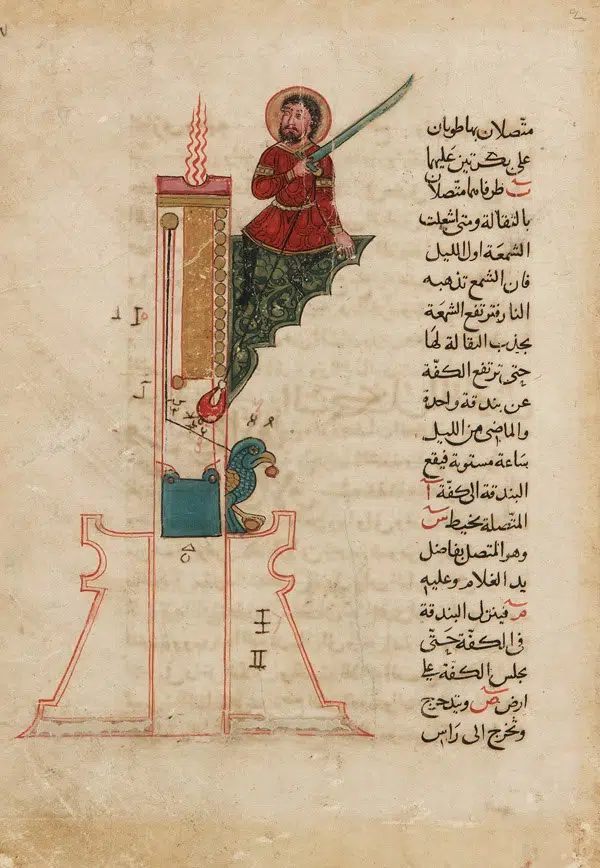 متصلان بها طويان
على بكرتين عليهما
ت طرفاهما متصلان
بالثقالة ومتى اشعلت
الشمعة اول الليل
فان الشمع تذهبه
النار فترتفع الشمعة
بجذب الثقالة لها
حتى ترتفع الكفّة
عن بندقة واحدة
والماضى من الليل
ساعة مستوية فيقع
البندقة الى كفّة آ
المتّصلة بخيط س
وهو المتصل بفاضل
يد الغلام وعليه
فينزل البندقة
فى الكفّة حَتّى
يجلس الكفّة على
ارض ص ويتدحرج
وتخرج الى رَاس